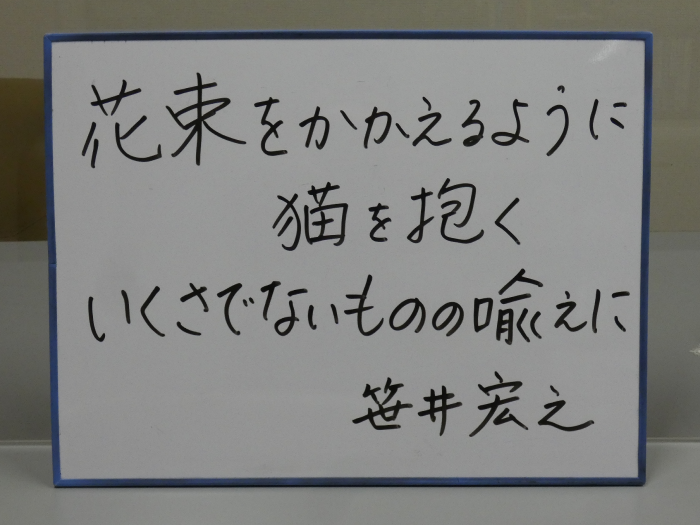 花束をかかえるように
猫を抱く
いくさでないものの喩えに
笹井宏之